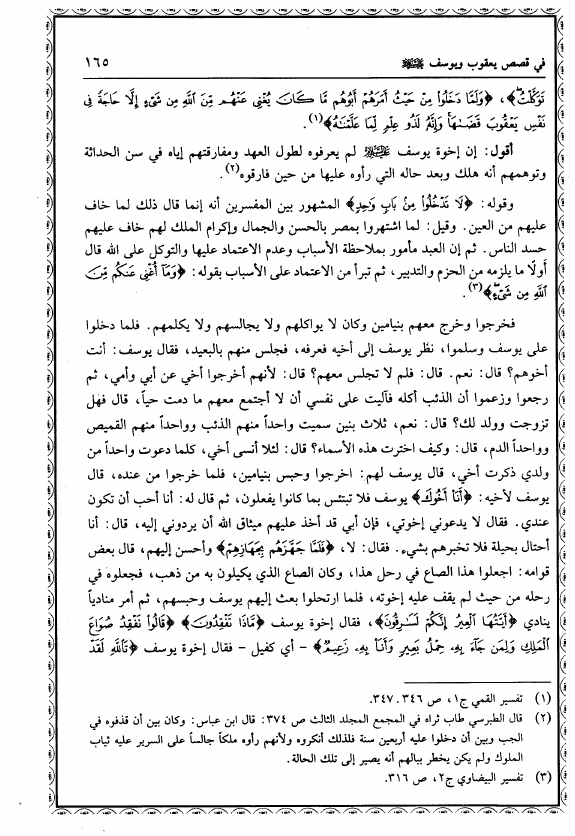 في قصص يعقوب ويوسف ﷺ ١٦٥
تَوَكَّلْتُ﴾، ﴿وَلَمَّا دَخَلُوا۟ مِنْ حَيْثُ أَمَرَهُمْ أَبُوهُم مَّا كَانَ يُغْنِى عَنْهُم مِّنَ اللَّهِ مِن شَىْءٍ إِلَّا حَاجَةً فِى
نَفْسِ يَعْقُوبَ قَضَىٰهَا وَإِنَّهُۥ لَذُو عِلْمٍ لِّمَا عَلَّمْنَٰهُ﴾(١).
أقول: إن إخوة يوسف ﷺ لم يعرفوه لطول العهد ومفارقتهم إياه في سن الحداثة
وتوهمهم أنه هلك وبعد حاله التي رأوه عليها من حين فارقوه(٢).
وقوله: ﴿لَا تَدْخُلُوا۟ مِنۢ بَابٍ وَٰحِدٍ﴾ المشهور بين المفسرين أنه إنما قال ذلك لما خاف
عليهم من العين. وقيل: لما اشتهروا بمصر بالحسن والجمال وإكرام الملك لهم خاف عليهم
حسد الناس. ثم إن العبد مأمور بملاحظة الأسباب وعدم الاعتماد عليها والتوكل على الله قال
أولًا ما يلزمه من الحزم والتدبير، ثم تبرأ من الاعتماد على الأسباب بقوله: ﴿وَمَآ أُغْنِى عَنكُم مِّنَ
اللَّهِ مِن شَىْءٍ﴾(٣).
فخرجوا وخرج معهم بنيامين وكان لا يواكلهم ولا يجالسهم ولا يكلمهم. فلما دخلوا
على يوسف وسلموا، نظر يوسف إلى أخيه فعرفه، فجلس منهم بالبعيد، فقال يوسف: أنت
أخوهم؟ قال: نعم. قال: فلم لا تجلس معهم؟ قال: لأنهم أخرجوا أخي عن أبي وأمي، ثم
رجعوا وزعموا أن الذئب أكله فآليت على نفسي أن لا أجتمع معهم ما دمت حياً، قال فهل
تزوجت وولد لك؟ قال: نعم، ثلاث بنين سميت واحداً منهم الذئب وواحداً منهم القميص
وواحداً الدم، قال: وكيف اخترت هذه الأسماء؟ قال: لئلا أنسى أخي، كلما دعوت واحداً من
ولدي ذكرت أخي، قال يوسف لهم: اخرجوا وحبس بنيامين، فلما خرجوا من عنده، قال
يوسف لأخيه: ﴿أَنَا۠ أَخُوكَ﴾ يوسف فلا تبتئس بما كانوا يفعلون، ثم قال له: أنا أحب أن تكون
عندي. فقال لا يدعوني إخوتي، فإن أبي قد أخذ عليهم ميثاق الله أن يردوني إليه، قال: أنا
أحتال بحيلة فلا تخبرهم بشيء. فقال: لا، ﴿فَلَمَّا جَهَّزَهُم بِجَهَازِهِمْ﴾ وأحسن إليهم، قال بعض
قوامه: اجعلوا هذا الصاع في رحل هذا، وكان الصاع الذي يكيلون به من ذهب، فجعلوه في
رحله من حيث لم يقف عليه إخوته، فلما ارتحلوا بعث إليهم يوسف وحبسهم، ثم أمر منادياً
ينادي ﴿أَيَّتُهَا الْعِيرُ إِنَّكُمْ لَسَٰرِقُونَ﴾، فقال إخوة يوسف ﴿مَّاذَا تَفْقِدُونَ﴾ ﴿قَالُوا۟ نَفْقِدُ صُوَاعَ
الْمَلِكِ وَلِمَن جَآءَ بِهِۦ حِمْلُ بَعِيرٍ وَأَنَا۠ بِهِۦ زَعِيمٌ﴾ - أي كفيل - فقال إخوة يوسف ﴿تَاللَّهِ لَقَدْ
(١) تفسير القمي ج١، ص ٣٤٦. ٣٤٧.
(٢) قال الطبرسي طاب ثراه في المجمع المجلد الثالث ص ٣٧٤: قال ابن عباس: وكان بين أن قذفوه في
الجب وبين أن دخلوا عليه أربعين سنة فلذلك أنكروه ولأنهم رأوه ملكاً جالساً على السرير عليه ثياب
الملوك ولم يكن يخطر ببالهم أنه يصير إلى تلك الحالة.
(٣) تفسير البيضاوي ج٢، ص ٣١٦.